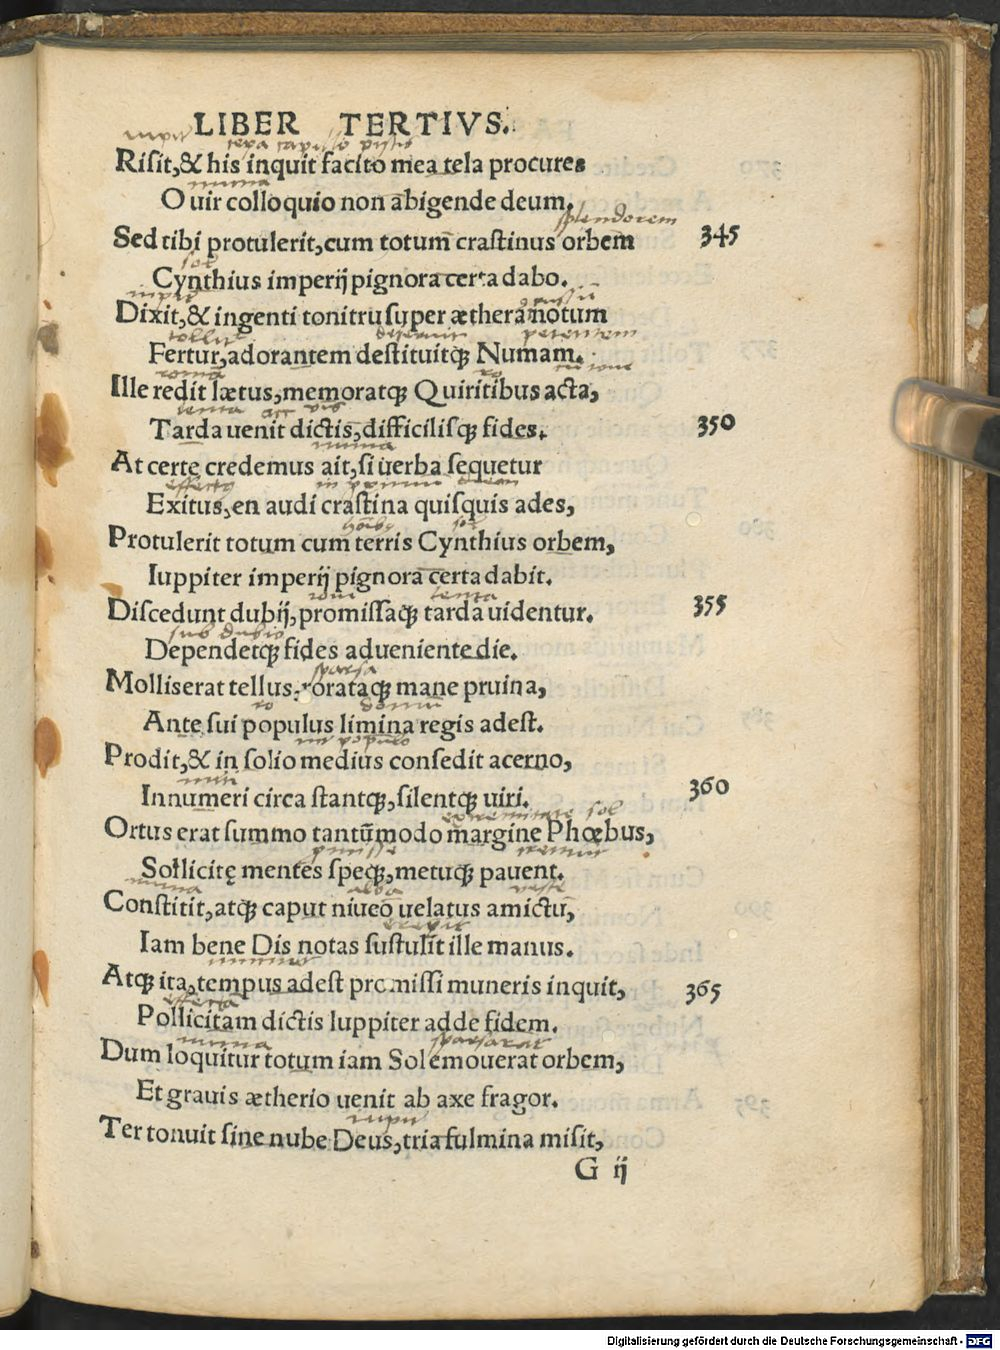 LIBER TERTIVS.
iupiter
Riſit,& his inquit facito mea tela procures
numa
O uir colloquio non abigende deum.
splendorem
Sed tibi protulerit,cum totum craſtinus orbem 345
sol
Cynthius imperij pignora certa dabo.
Dixit,& ingenti tonitru ſuper æthera notum
tollit petentem
Fertur,adorantem deſtituitq; Numam.
Ille redit lætus,memoratq; Quiritibus acta,
lenta
Tarda uenit dictis,difficilisq; fides. 350
numa
At certe credemus ait,ſi uerba ſequetur
Exitus,en audi craſtina quiſquis ades,
sol
Protulerit totum cum terris Cynthius orbem,
Iuppiter imperij pignora certa dabit.
lenta
Diſcedunt dubij,promiſſaq; tarda uidentur. 355
sub dubio
Dependetq; fides adueniente die.
sparsa
Molliserat tellus rorataq; mane pruina,
Ante ſui populus limina regis adeſt.
Prodit,& in ſolio medius conſedit acerno,
Innumeri circa ſtantq;,ſilentq; uiri. 360
extremitate sol
Ortus erat ſummo tantũmodo margine Phœbus,
Sollicitę mentes ſpeq;,metuq; pauent.
numa alba veste
Conſtitit,atq; caput niueo uelatus amictu,
Iam bene Dis notas ſuſtulit ille manus.
Atq; ita,tempus adeſt promiſſi muneris inquit, 365
Pollicitam dictis Iuppiter adde fidem.
numa
Dum loquitur totum iam Sol emouerat orbem,
Et grauis ætherio uenit ab axe fragor.
Ter tonuit ſine nube Deus,tria fulmina miſit,
G ij
Digitalisierung gefördert durch die Deutsche Forschungsgemeinschaft - DFG